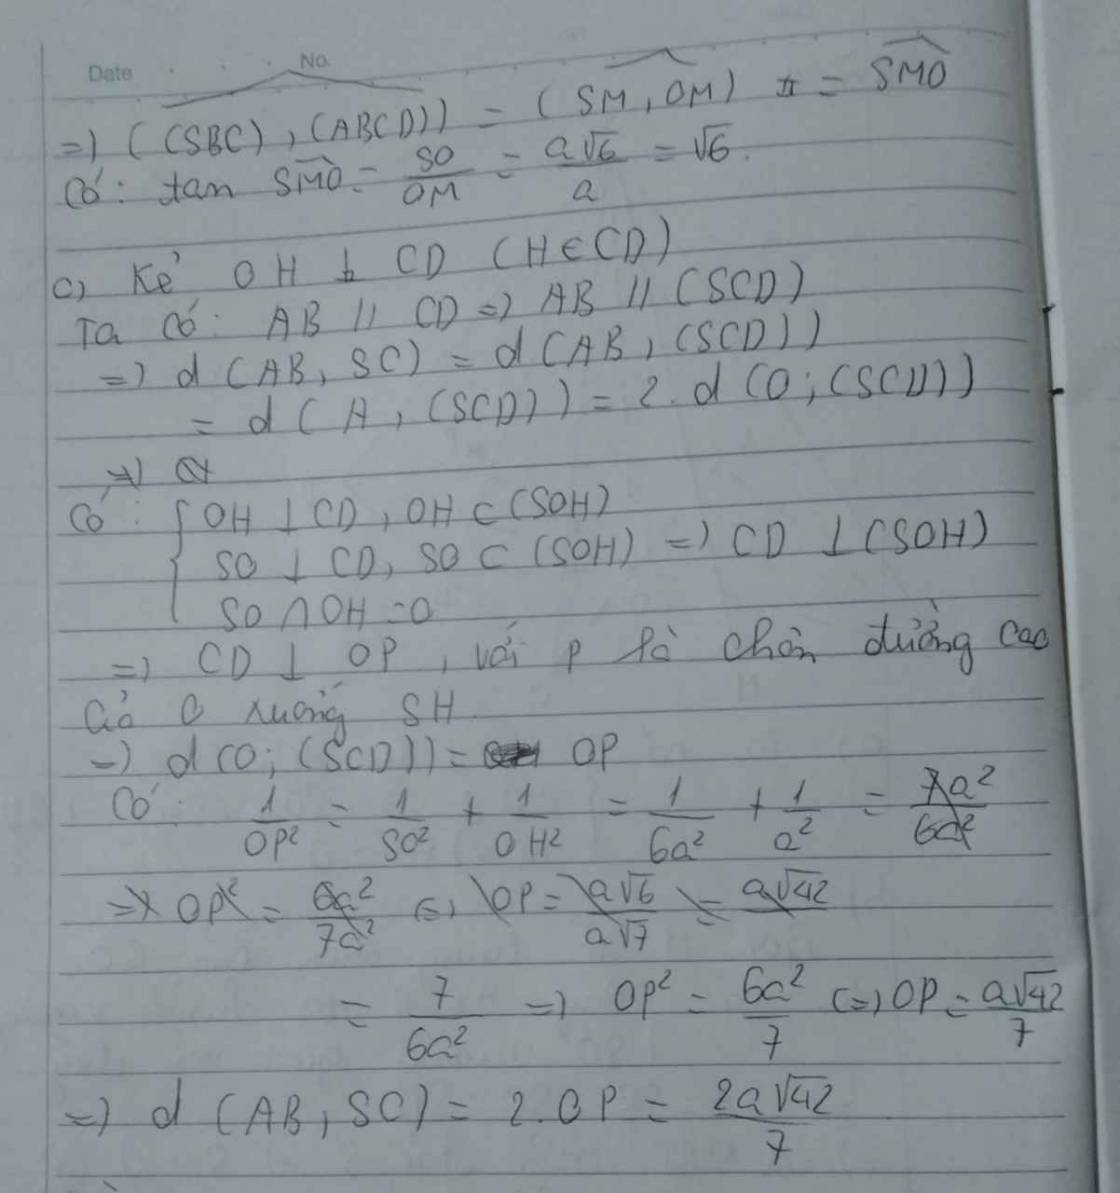 Date No.
=) ((SBC), (ABCD)) = (SM, OM) = SMO
Có: tan SMO = SO/OM = a√6/a = √6.
c) Kẻ OH ⊥ CD (H ∈ CD)
Ta có: AB // CD =) AB // (SCD)
=) d (AB, SC) = d (AB, (SCD))
= d (A, (SCD)) = 2. d (O; (SCD))
=)
Có: { OH ⊥ CD, OH ⊂ (SOH)
SO ⊥ CD, SO ⊂ (SOH) =) CD ⊥ (SOH)
SO ∩ OH = O
=) CD ⊥ OP, với P là chân đường cao
của O xuống SH
=) d (O; (SCD)) = OP
Có: 1/OP² = 1/SO² + 1/OH² = 1/6a² + 1/a² = 7a²/6a²
=) OP² = 6a²/7a² (=) OP = a√6/a√7 = a√42
= 7/6a² =) OP² = 6a²/7 (=) OP = a√42/7
=) d (AB, SC) = 2.OP = 2a√42/7